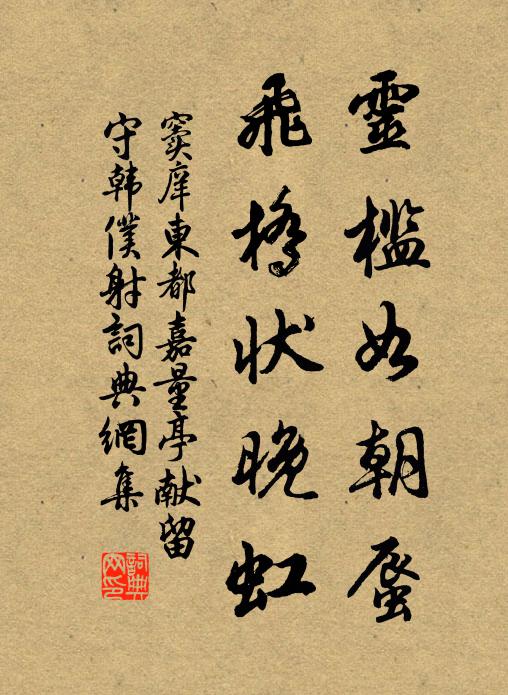 靈檻如朝蜃
飛橋狀晚虹
竇庠東都嘉量亭献留
守韓僕射詞典網集
詞典网印